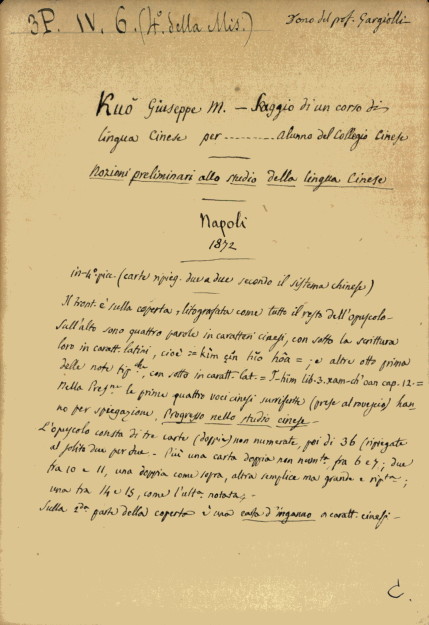 3P. IV. 6. (4º. della Mis.)
Dono del prof. Gargiolli
Kuŏ Giuseppe M. — Saggio di un corso di
lingua Cinese per ......... alunno del Collegio Cinese
Nozioni preliminari allo studio della lingua Cinese
Napoli
1872
in-4º. picc. (carte ripieg. due a due secondo il sistema chinese)
Il front. è sulla coperta, litografata come tutto il resto dell'opuscolo.
Sull'alto sono quattro parole in caratteri cinesi, con sotto la scrittura
loro in caratt. latini, cioè = kim = ; e altre otto prima
delle note con sotto in caratt. lat. = lib. 3. cap. 12. =
Nella le prime quattro voci cinesi surriferite (prese al rovescio) han-
no per spiegazione, Progresso nello studio cinese.
L'opuscolo consta di tre carte (doppie) non numerate, poi di 36 (ripiegate
al solito due per due. Più una carta doppia non fra 6 e 7; due
fra 10 e 11, una doppia come sopra, altra semplice ma grande e
una tra 14 e 15, come l'ultª. notata;
Sulla 2ª. parte della coperta è una a caratt. cinesi.
C.